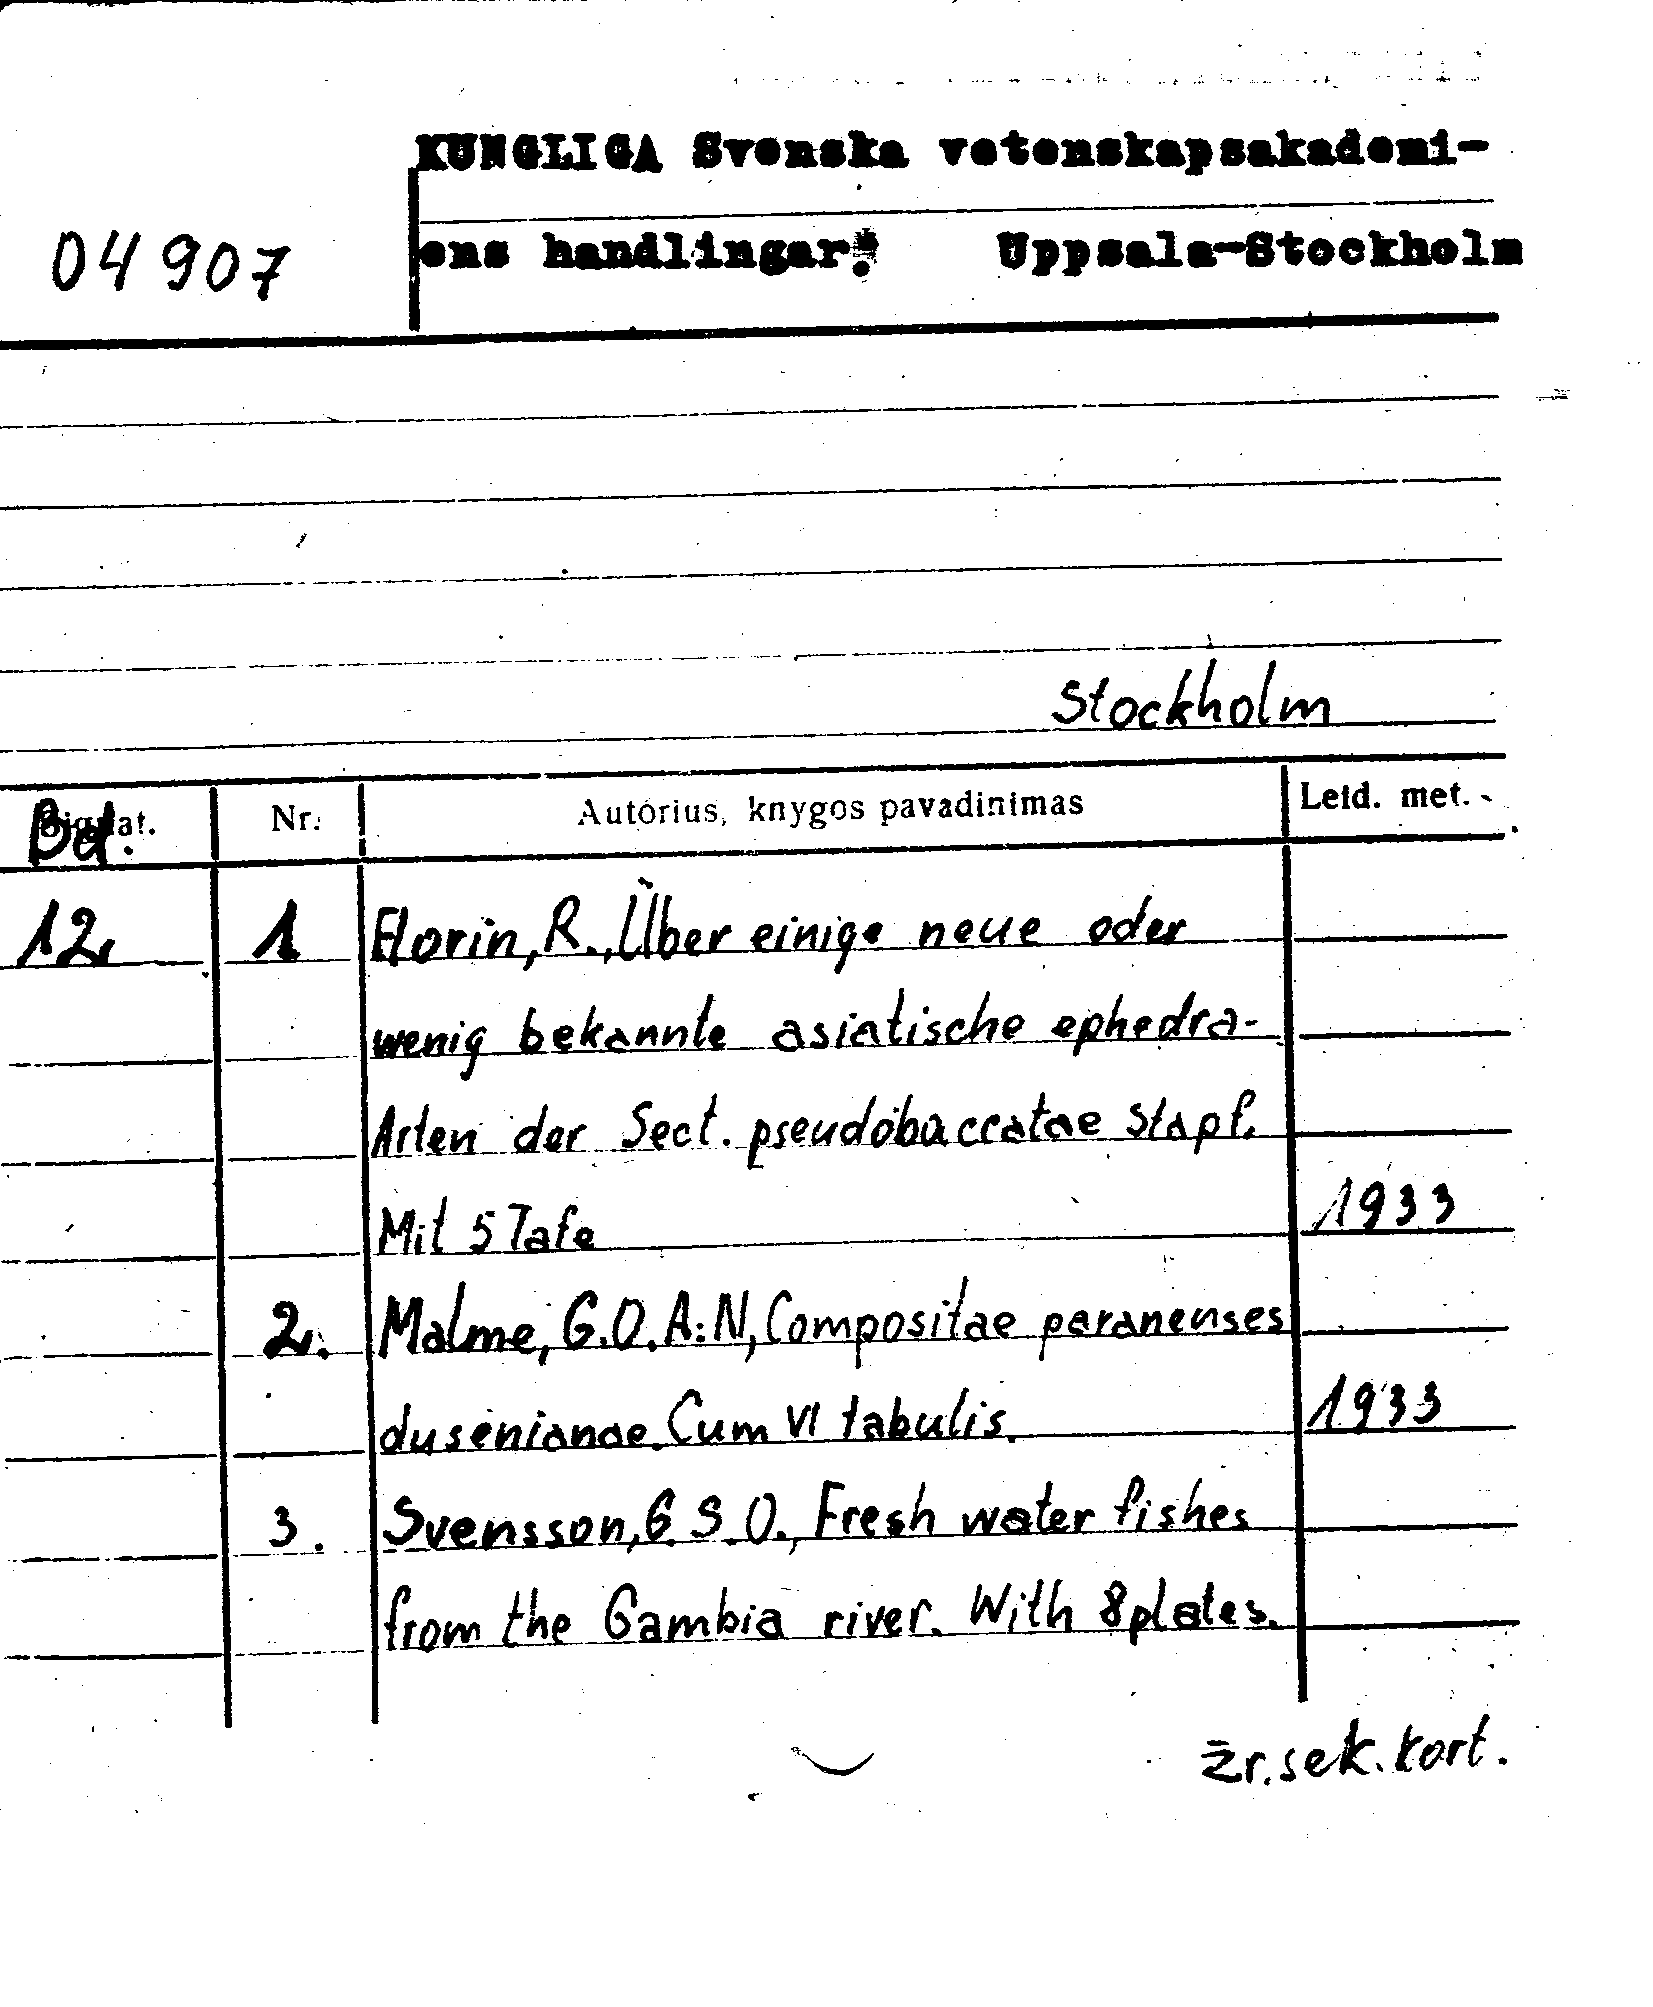 KUNGLIGA Svenska vetenskapsakademi-
04907 ens handlingar. Uppsala-Stockholm
Stockholm
Bd. Nr. Autorius, knygos pavadinimas Leid. met.
12. 1 Florin, R., Über einige neue oder
wenig bekannte asiatische ephedra-
Arten der Sect. pseudobaccatae Stapf.
Mit 5 Tafe 1933
2. Malme, G.O.A:N, Compositae paranenses
dusenianae. Cum VI tabulis. 1933
3. Svensson, G.S.O., Fresh water fishes
from the Gambia river. With 8 plates.
žr. sek. kort.